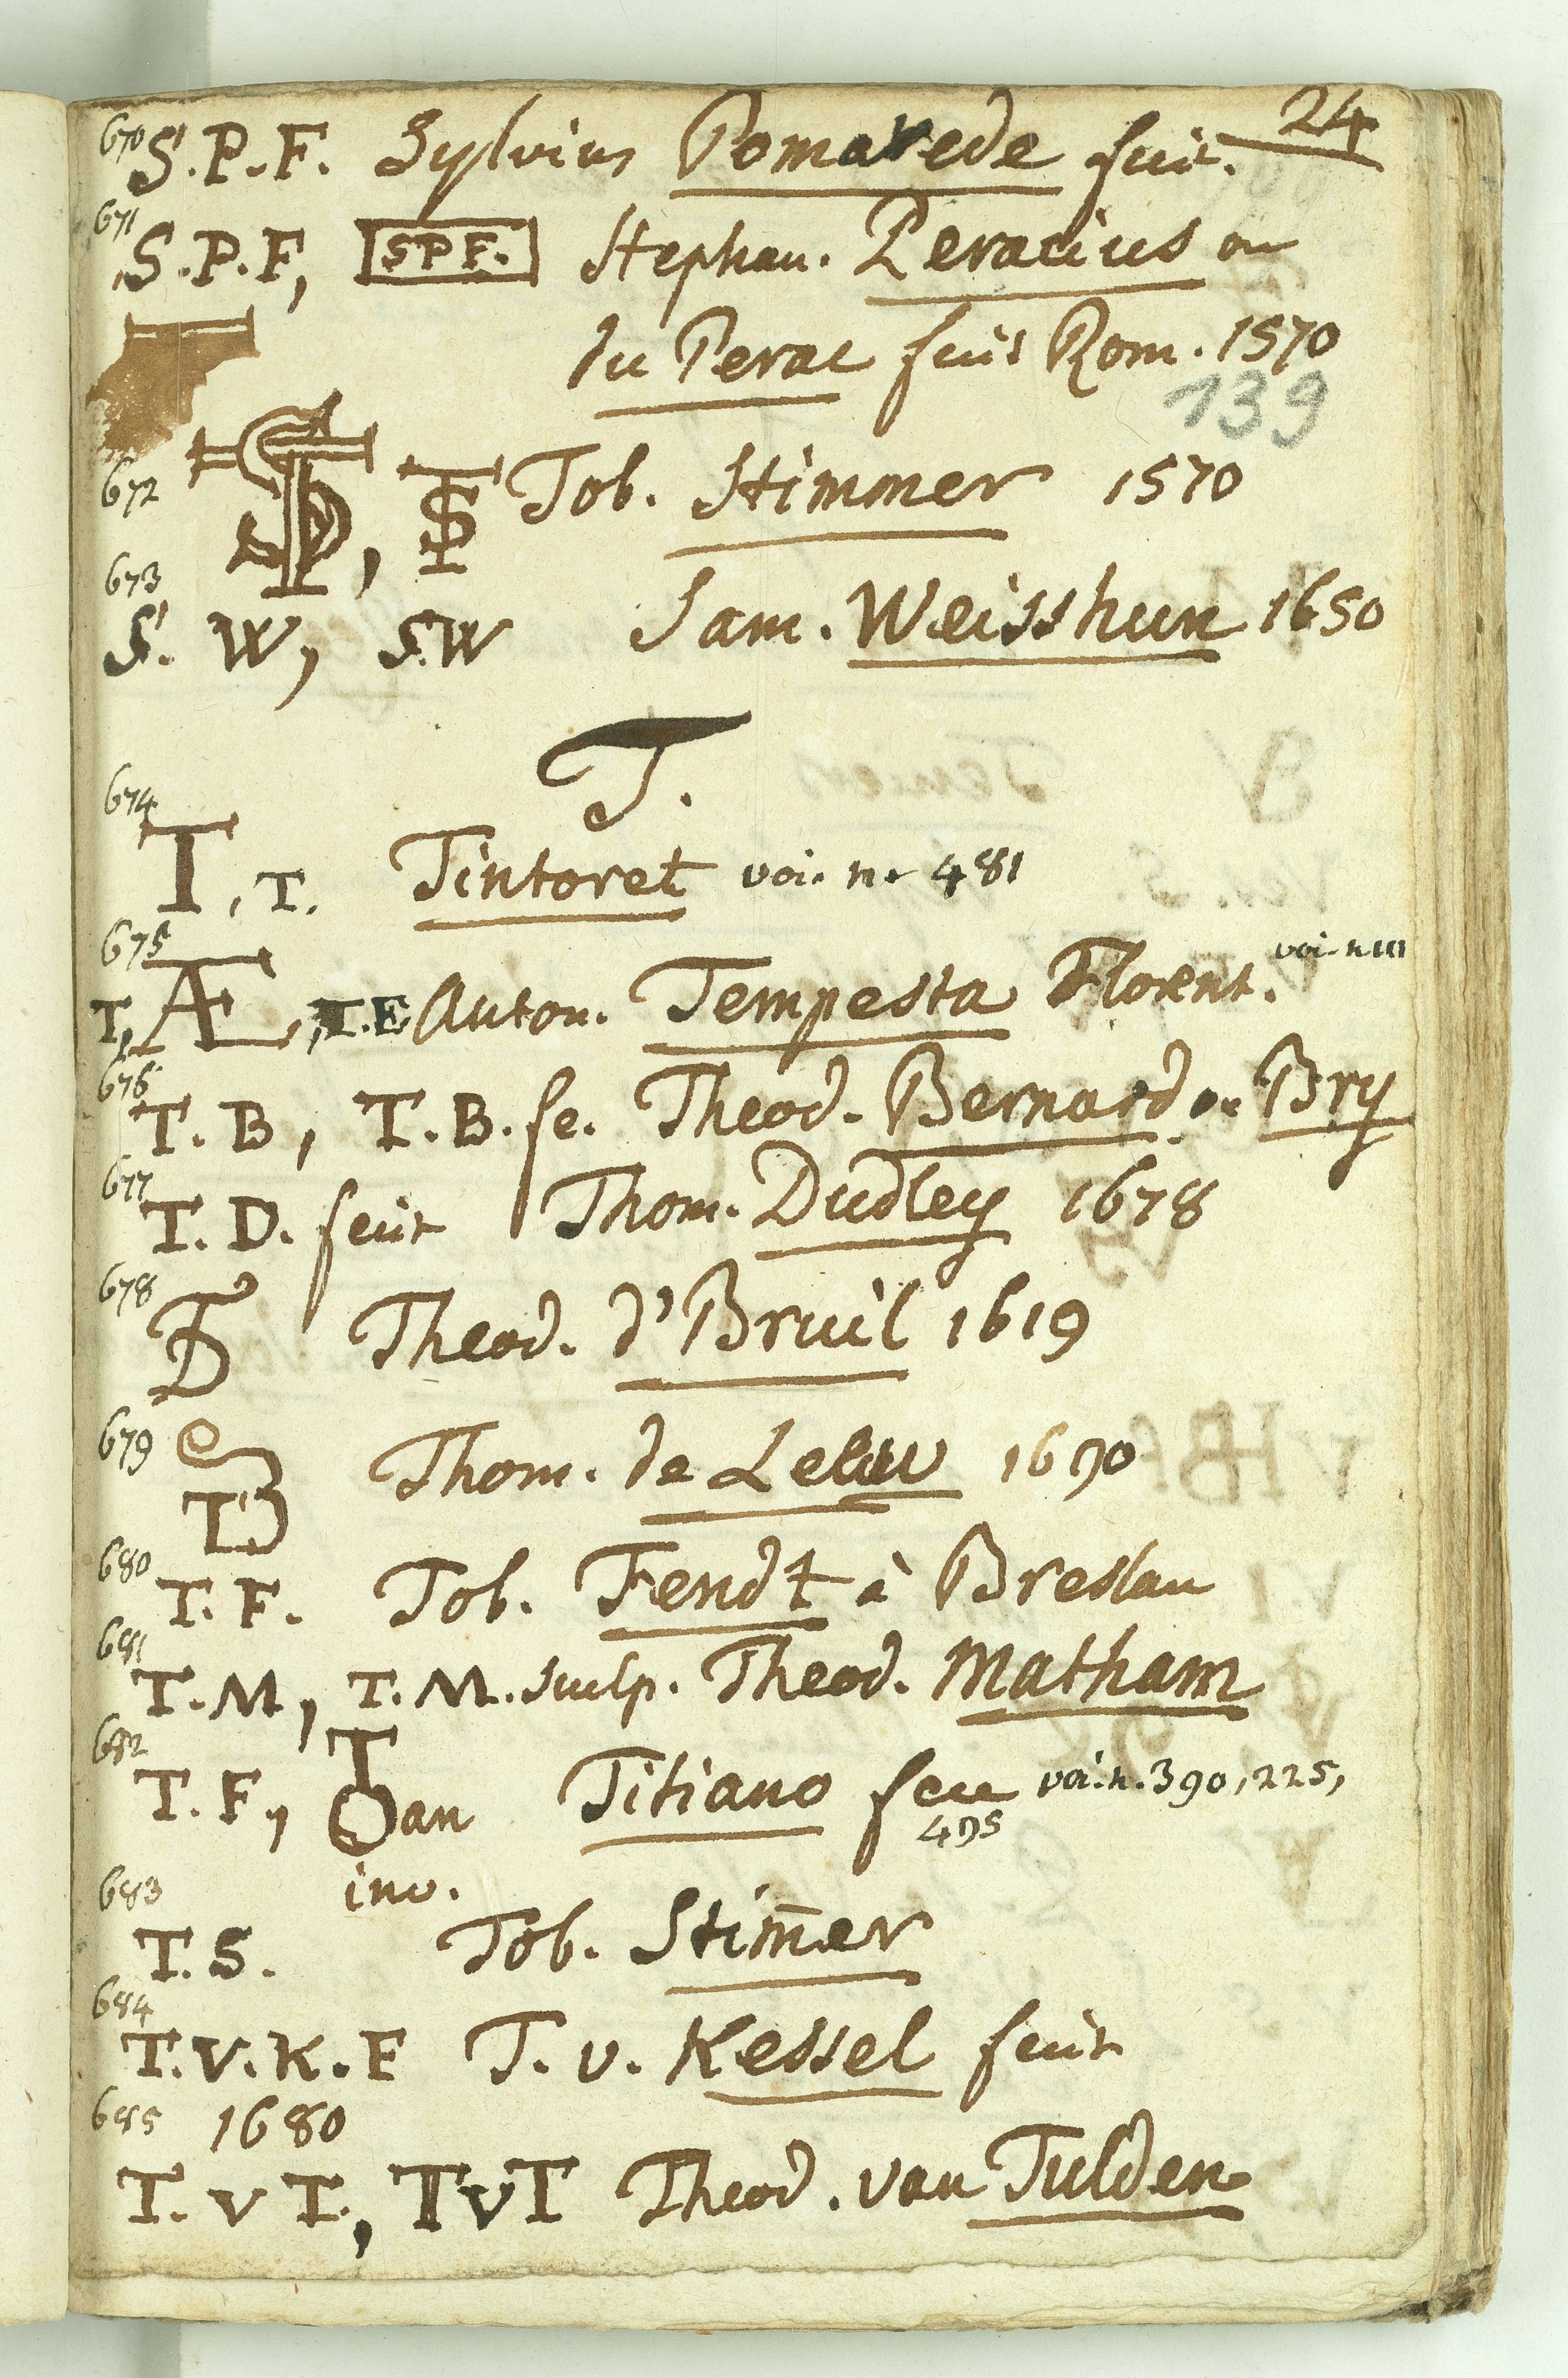 24
670 S.P.F. Sylvius Pomarede fecit.
671 S.P.F, SPF. Stephan. Peracius ou
du Perac fecit Rom. 1570
139
672 TS, TS Tob. Stimmer 1570
673 S. W, S.W Sam. Weisshun 1650
T.
674 T, T. Tintoret voi. n. 481
675 T, T.E Anton. Tempesta Florent. voi. n 111
676 T.B, T.B. fe. Theod. Bernard ou Bry
677 T. D. fecit Thom. Dudley 1678
678 TB Theod. d'Bruil 1619
679 Thom. de Leeuw 1690
680 T. F. Tob. Fendt à Breslau
681 T.M, T.M. sculp. Theod. Matham
682 T.F, Tan Titiano voi. n. 390, 225,
495
inv.
683 T.S. Tob. Stim̄er
684 T.V.K.F T. v. Kessel fecit
1680
685 T. v T, TvT Theod. van Tulden